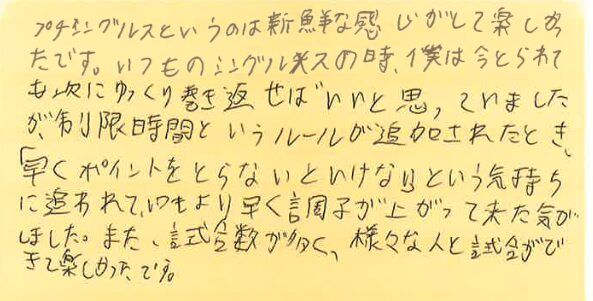 プチシングルスというのは新鮮な感じがして楽しかっ
たです。いつものシングルスの時、僕は今とられて
も次にゆっくり巻き返せばいいと思っていました
が、制限時間というルールが追加されたとき、
「早くポイントをとらないといけない」という気持ち
に追われて、いつもより早く調子が上がって来た気が
しました。また、試合数が多く、様々な人と試合がで
きて楽しかったです。